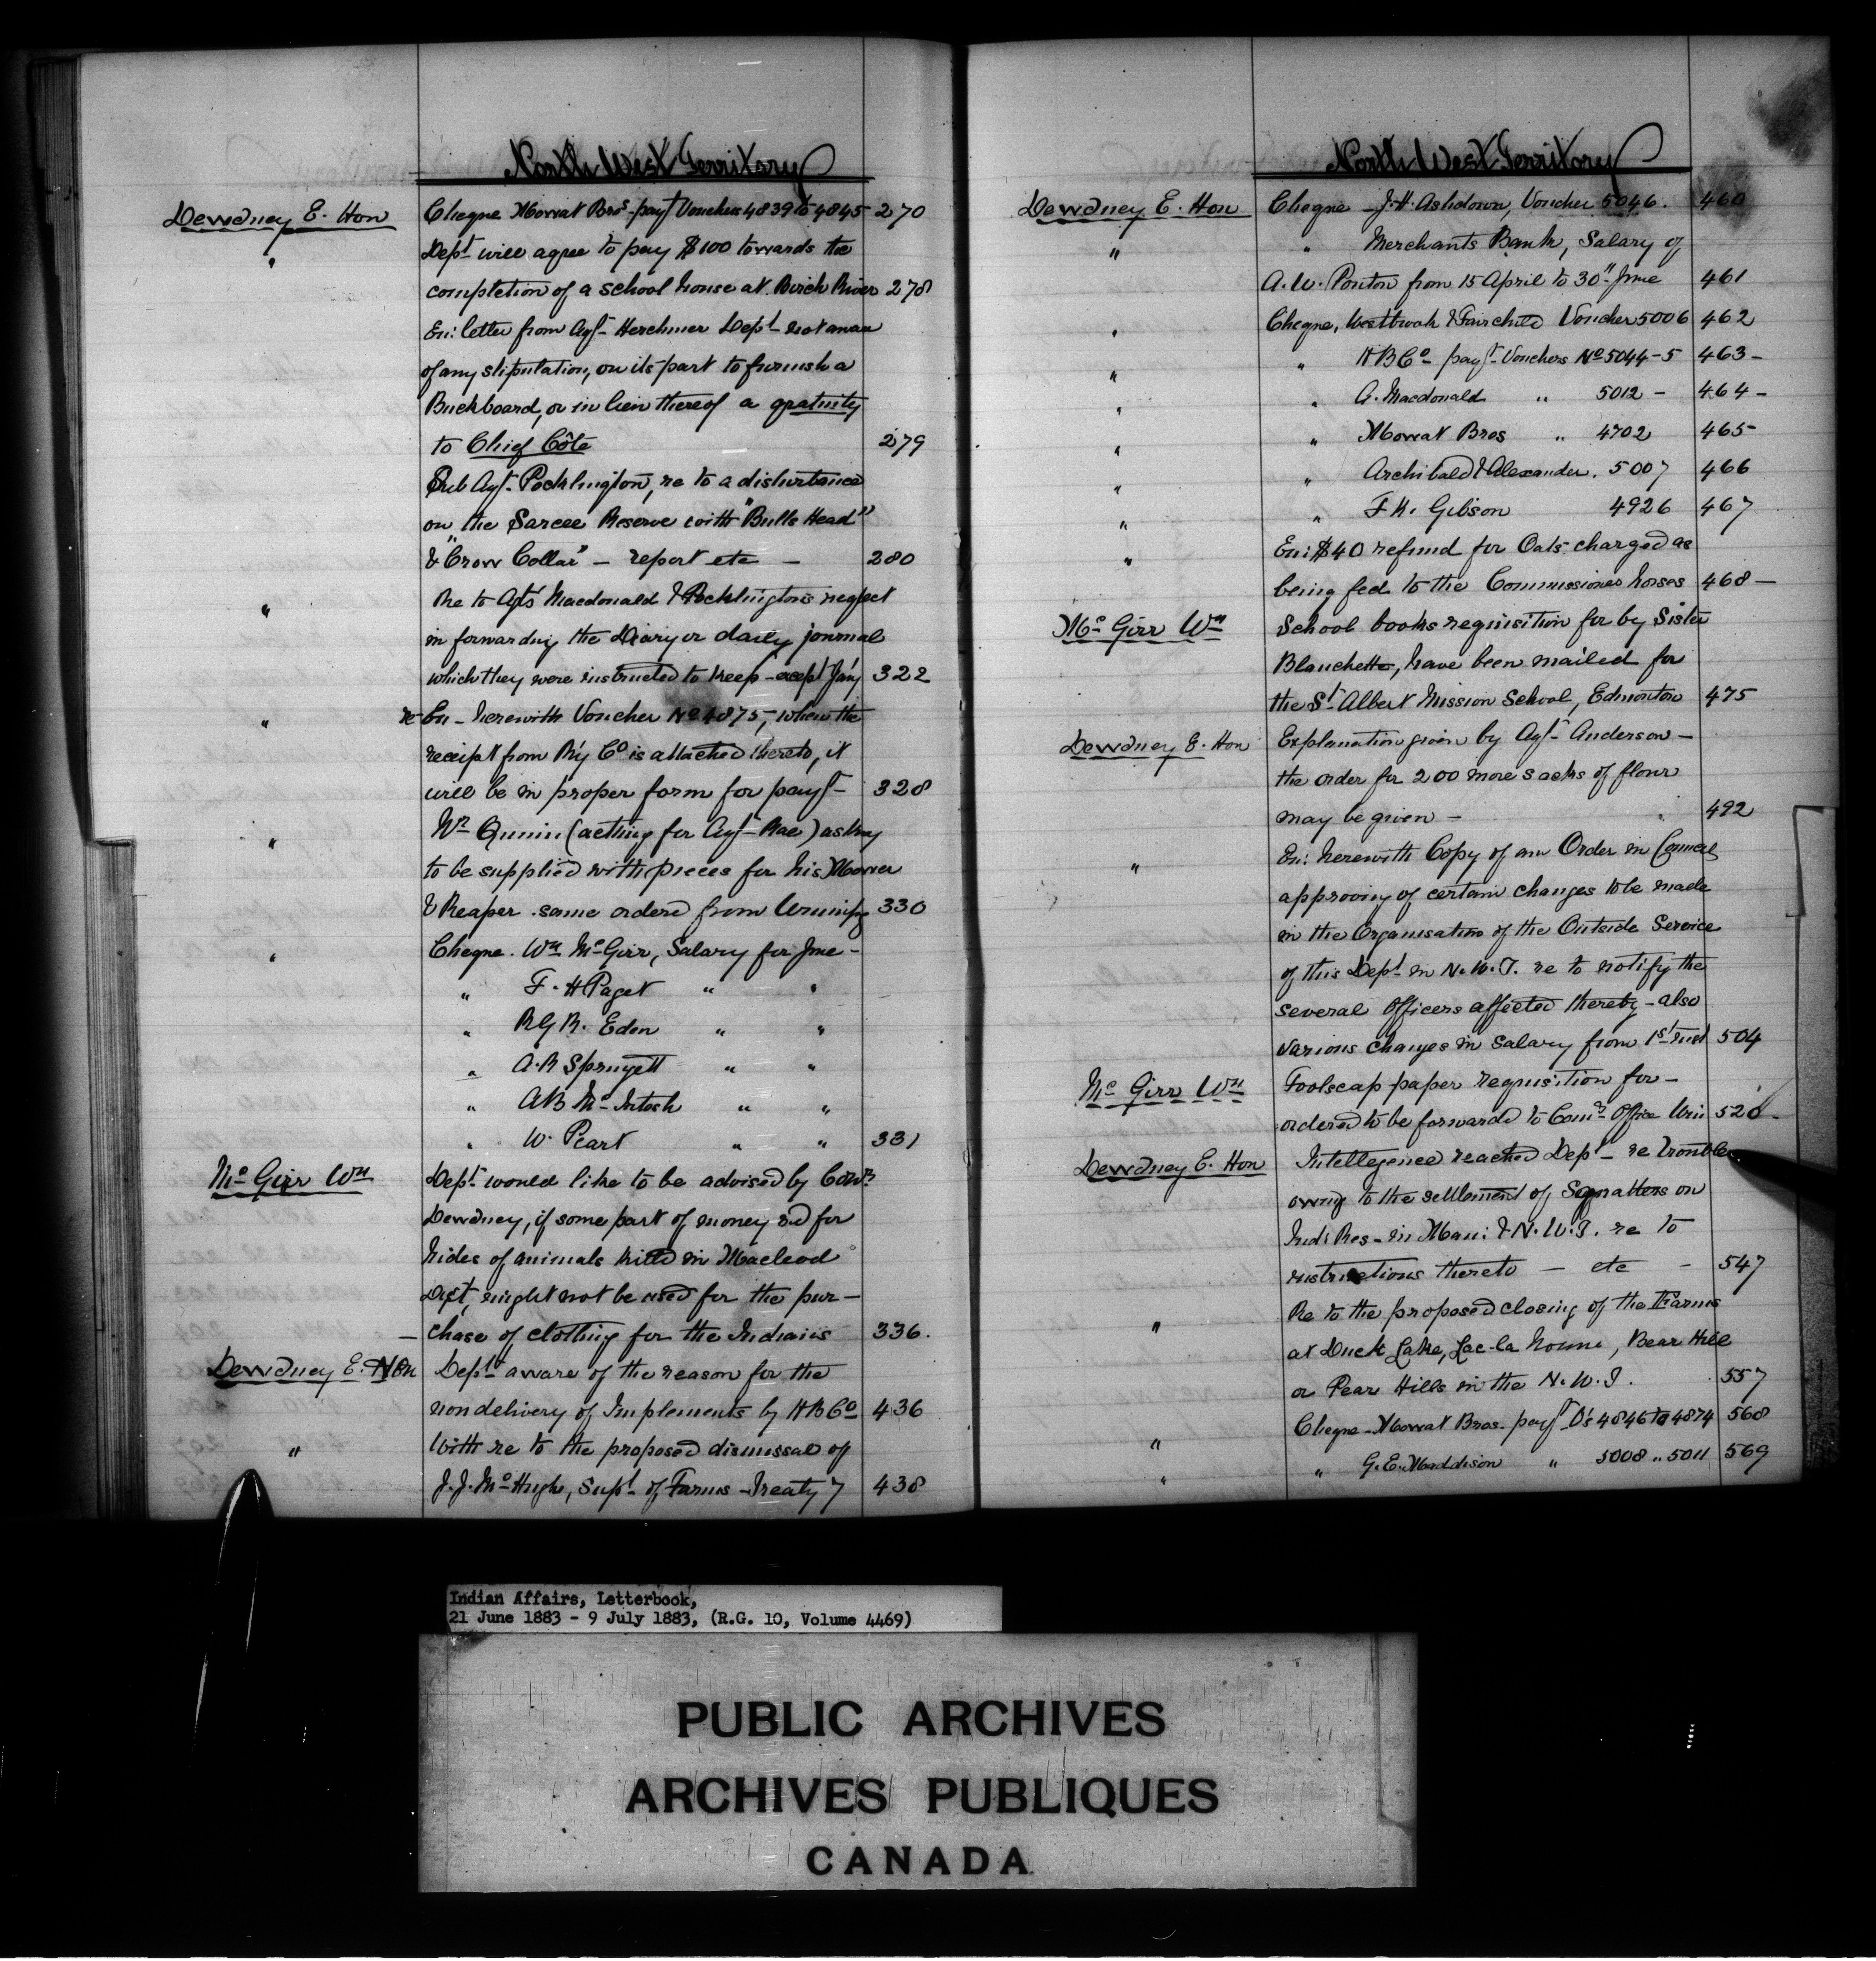 North West Territory
Dewdney E. Hon Cheque Mowat Bros payt Vouchers 4839 to 4845 270
" Dept will agree to pay $100 towards the
completion of a school house at Birch River 278
En: letter from Agt Herchmer Dept not aware
of any stipulation, on its part to furnish a
Buckboard, or in lieu thereof a gratuity
to Chief Côté 279
Sub Agt Pocklington, re to a disturbance
on the Sarcee Reserve with "Bulls Head"
& "Crow Collar" – report etc – 280
" Re to Agts Macdonald & Pocklington's neglect
in forwarding the Diary or daily journal
which they were instructed to keep – except Jan'y 322
" re En – herewith Voucher No 4875, when the
receipt from R'y Co is attached thereto, it
will be in proper form for payt – 328
" Wm Quinn (acting for Agt Rae) asking
to be supplied with pieces for his Mower
& Reaper. same ordered from Winnipg 330
" Cheque. Wm McGirr, Salary for June –
" F. H Paget " "
" R G R. Eden " "
" A. R Springett " "
" A B McIntosh " "
" W. Peart " " 331
McGirr Wm Dept would like to be advised by Comr
Dewdney, if some part of money rd for
hides of animals killd in Macleod
Dist, might not be used for the pur –
– chase of clothing for the Indians 336.
Dewdney E. Hon Dept aware of the reason for the
non delivery of Implements by H B Co 436
" With re to the proposed dismissal of
J. J. McHugh, Supt of Farms – Treaty 7 438
North West Territory
Dewdney E. Hon Cheque – J. H. Ashdown, Voucher 5046. 460
" " Merchants Bank, Salary of
A. W. Ponton from 15 April to 30" June 461
" Cheque, Westbrook & Fairchild Voucher 5006 462
" " H B Co payt Vouchers No 5044–5 463 –
" " A. Macdonald " 5012 – 464 –
" " Mowat Bros " 4702 465 –
" " Archibald & Alexander. 5007 466
" " F K. Gibson 4926 467
" En: $40 refund for Oats charged as
being fed to the Commissioner horses 468 –
McGirr Wm School books requisition for by Sister
Blanchette, have been mailed for
the St Albert Mission School, Edmonton 475
Dewdney E. Hon Explanation given by Agt Anderson –
the order for 200 more sacks of flour
may be given – 492
" En: herewith Copy of an Order in Council
approving of certain changes to be made
in the Organisation of the Outside Service
of this Dept in N. W. T. re to notify the
several Officers affected thereby – also
various changes in Salary from 1st inst 504
McGirr Wm Foolscap paper requisition for –
ordered to be forwarded to Comr Office Win 520 –
Dewdney E. Hon Intellegence reached Dept – re trouble
owing to the settlement of Squatters on
Ind: Res – in Man: & N. W. T. re to
instructions thereto – etc – 547
" Re to the proposed closing of the Farms
at Duck Lake, Lac-la Nonne, Bear Hill
or Pear Hills in the N. W. T. 557
" Cheque – Mowat Bros. payt V's 4846 to 4874 568
" " G. E. Maddison " 5008 " 5011 569
Indian Affairs, Letterbook,
21 June 1883 - 9 July 1883, (R.G. 10, Volume 4469)
PUBLIC ARCHIVES
ARCHIVES PUBLIQUES
CANADA